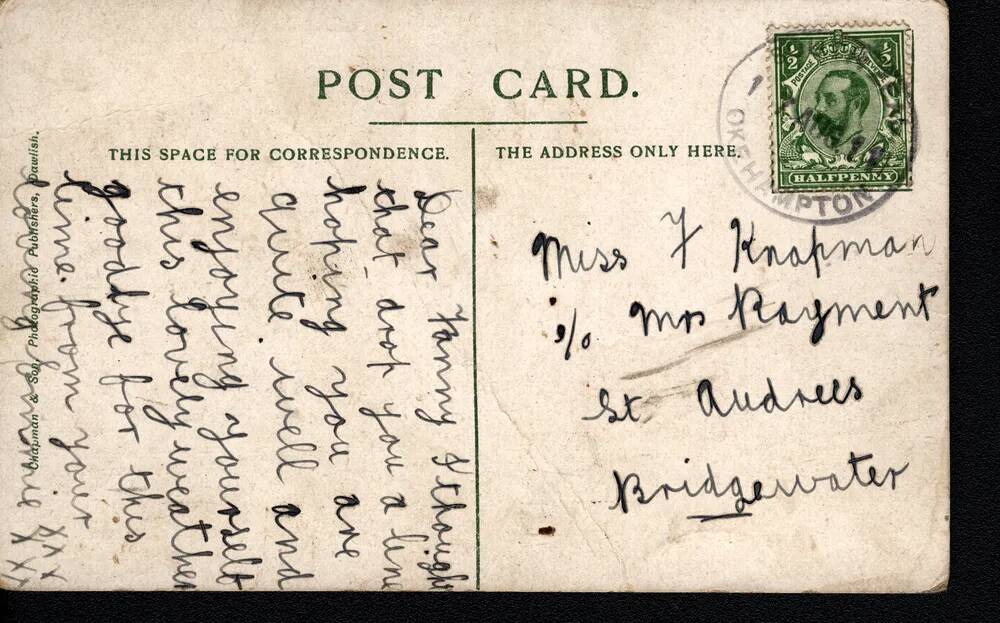 POST CARD.
THIS SPACE FOR CORRESPONDENCE.
THE ADDRESS ONLY HERE.
Dear Fanny I though
that drop you a line
hoping you are
quite well and
enjoying yourself
this lovely weather
goodbye for this
time from your
loving
xxx
x xx
Miss F Knapman
c/o Mrs Rayment
St. Audrees
Bridgewater
Chapman & Son, Photographic Publishers, Dawlish.
½ ½
POSTAGE REVENUE
HALFPENNY
AUG
OKEHAMPTON